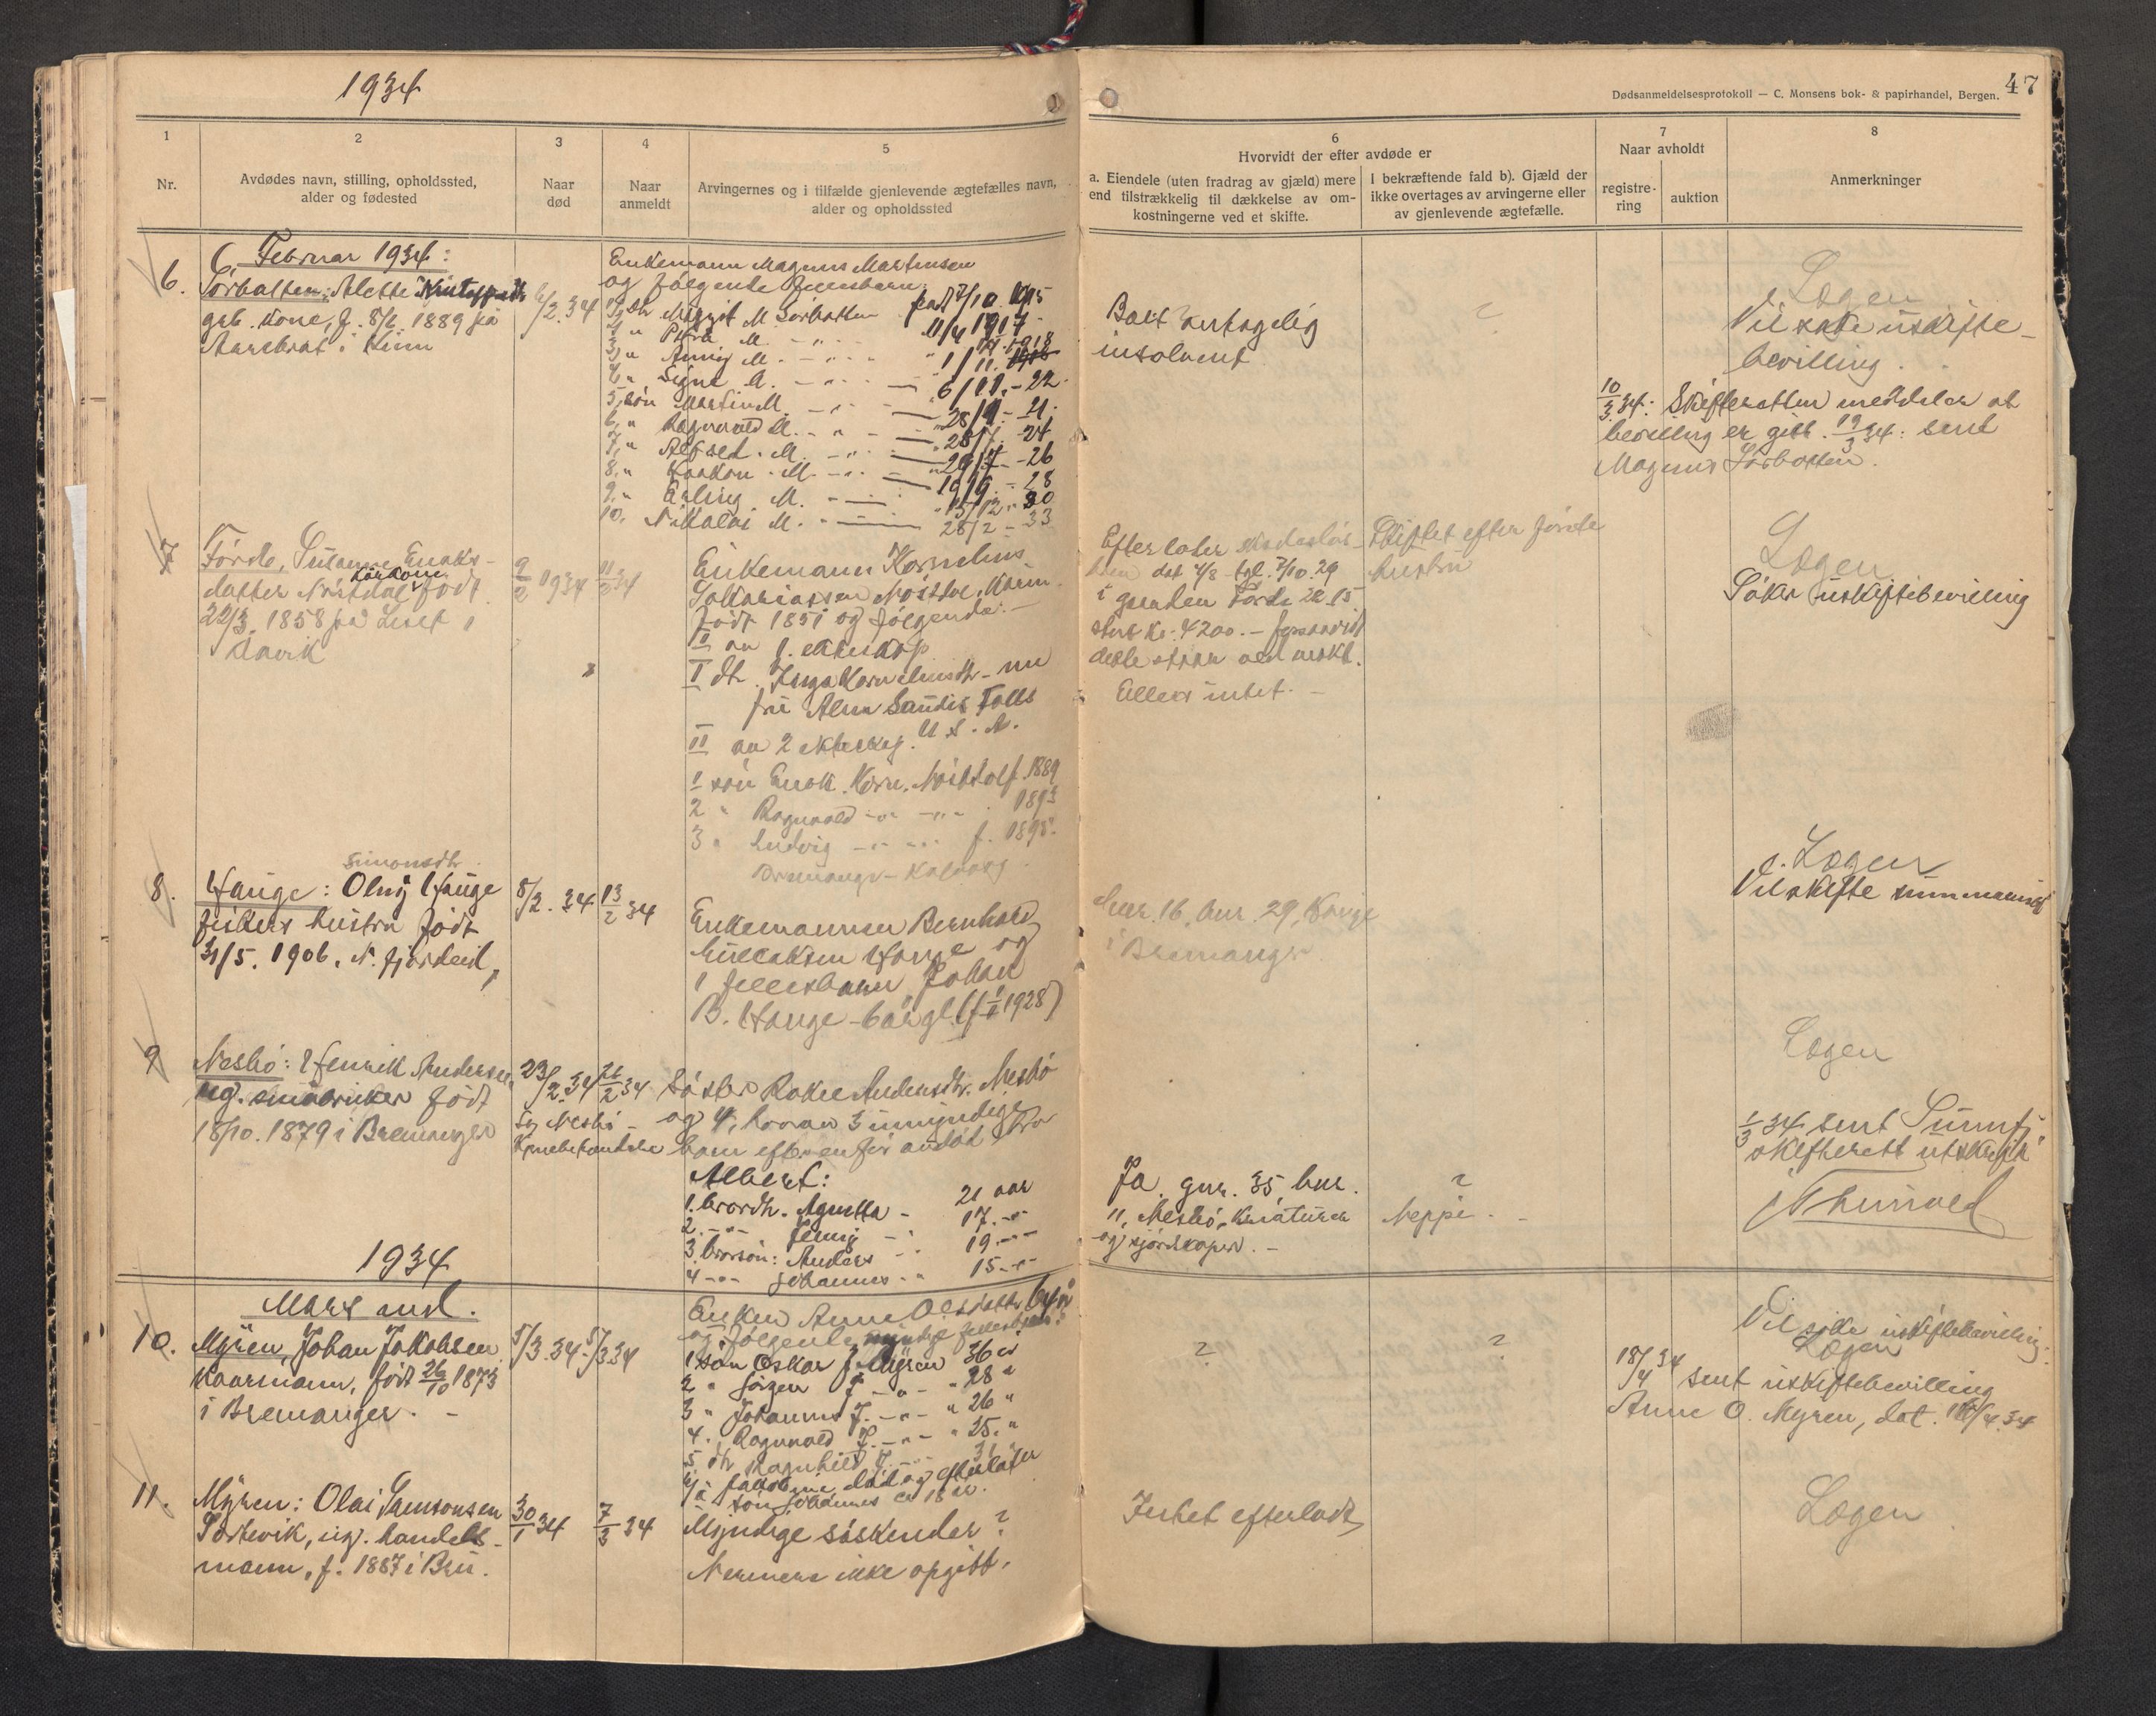 1934
47
Dødsanmeldelsesprotokoll — C. Monsens bok- & papirhandel, Bergen.
1
2
3
4
5
6
7
8
Nr.
Avdødes navn, stilling, opholdssted,
alder og fødested
Naar
død
Naar
anmeldt
Arvingernes og i tilfælde gjenlevende ægtefælles navn,
alder og opholdssted
Hvorvidt der efter avdøde er
a. Eiendele (uten fradrag av gjæld) mere
end tilstrækkelig til dækkelse av om-
kostningerne ved et skifte.
I bekræftende fald b). Gjæld der
ikke overtages av arvingerne eller
av gjenlevende ægtefælle.
Naar avholdt
registre-
ring
auktion
Anmerkninger
Februar 1934:
6.
Sørbotten: Alette
gift kone, f. 8/6 1889 på
i Kinn
/2.34
Enkemann Magnus Martinsen
og følgende fellesbarn:
1) dtr Margit M Sørbotten født 7/10 1915
2 " Petra M. 11/4 1917
3 " Anny M. 1918
4 " Signe M. 1/11
5, søn Martin M. 6/11 - 22
6, " Ragnvald M. 28/9 - 21
7, " Alfred M. 28/7 - 24
8, " Haakon M. - 26
9, " Erling M. 19/9 - 28
15/12 - 30
10. Nikolai M. 28/2 - 33
Boet antagelig
insolvent
?
Logen
Vil søke uskifte-
bevilling.
10/3 34: Skifteretten meddeler at
bevilling er gitt. 19/3 34: sent
Magnus Sørbotten.
7
Førde, Susanne Enoks-
datter Nøstdal kårkone født
22/3. 1858 på Leset i
Davik
9/2 1934
11/2 34
Enkemann Kornelius
Sakariassen Nøstdal, kårm.
født 1851 og følgende:
I av 1. ekteskap
I dtr. Inga Korneliusdtr - nu
fru Alm Sandis Falls
U.S.A.
II av 2 ekteskap.
1 søn Enok Korn. Nøstdal f. 1889
2 " Ragnvald -"- -"- 1893
3 " Ludvig -"- -"- f. 1895.
Bremanger - Kalvåg
Efterlater skadesløs-
brev dat 4/8 tgl. 7/10.29
i garden Førde 22.15
stort kr. 4200.-
dette står ved makt.
Ellers intet. -
Skiftet efter første
hustru
Logen
Søker uskiftebevilling
8.
Simonsdtr.
Hauge: Olny Hauge
fiskers hustru født
31/5. 1906. N. fjordeid,
8/2. 34
13/2 34
Enkemannen Bernhard
Hauge og
1 fellesbarn Johan
B. Hauge - (f. 1928)
Gnr. 16, bnr. 29, Hauge
i Bremanger
Logen
Vil skifte summarisk
9
Nesbø: Henrik Andersen
ug. småbruker født
18/10. 1879 i Bremanger
23/2.34
26/2 34
Søster Rakel Andersdtr. Nesbø
og 4, hvorav 3 umyndige
barn efter en før avdød bror
Albert:
1. brordtr. Agnetta - 21 aar
2. -"- Jenny - 17 -"-
3. brorsøn: Anders - 19 -"-
4 -"- Johannes - 15 -"-
Ja. gnr. 35, bnr.
11, Nesbø, kreaturer
og sjøredskaper. -
?
Neppe. -
Logen
1/3 34 sent Sunnfj.
skifterett utskrift
1934
Mars md.
10.
Myren, Johan Jakobsen
kaarmann, født 26/10 1873
i Bremanger. -
5/3.34
5/3.34
Enken Anne Olsdatter 64 år
og følgende myndige fellesbarn:
1 søn Oskar J. Myren 36 år
2 " Jørgen J. -"- 28 "
3 " Johannes J. -"- 26 "
4. " Ragnvald J. -"- 25. "
5 dtr Ragnhild J. 31 "
6) død og efterlater
søn Johannes ca 18 år.
?
?
Vil søke uskiftebevilling.
Logen
18/4 34 sent uskiftebevilling
Anne O. Myren, dat. 16/4 34
11.
Myren: Olai Samsonsen
Sørtevik, ug. handels-
mann, f. 1887 i Bru.
30/1 34
7/3 34
Myndige søskender?
Nermere ikke opgitt.
Intet efterlatt
Logen